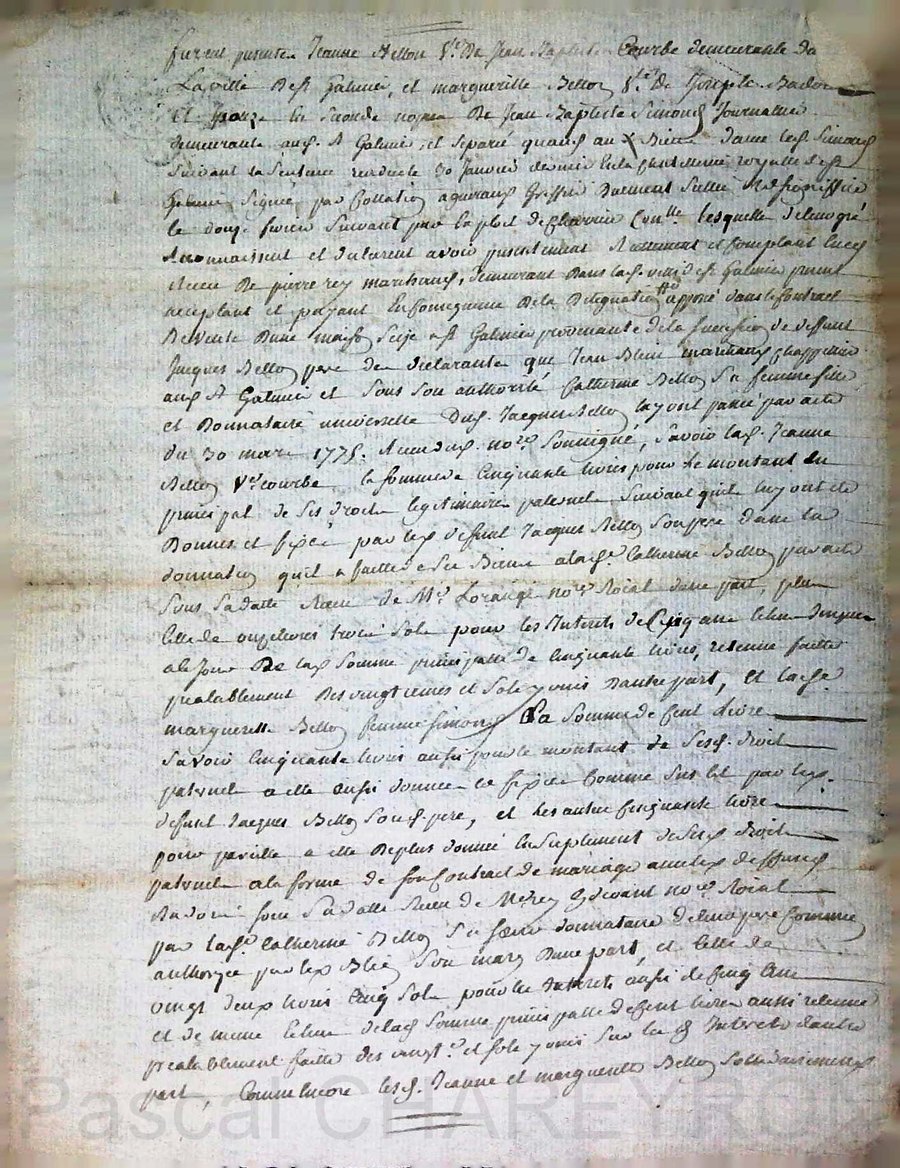 furent presentes Jeanne Bellon V.e De Jean Baptiste Courbe demeurante da
La ville De st Galmier, et margueritte Bellon V.e De Joseph Badou
et epouze En seconde nopces De Jean Baptiste Simond Journalier
demeurante aud. st Galmier, et separée quand aux Biens dame led. Simond
Suivant la Sentence rendue le 30 Janvier dernier En la chatellenie royalle de st
Galmier Signée par Collation greffier
le douze fevrier Suivant par exploit de lesquelles de leur gré
Reconnaissent et declarent avoir presentement Reellement et comptant receu
De pierre rey marchand, demeurant Dans lad. ville de st Galmier present
acceptant et payant En consequence De la Delegation apposé dans le Contract
De vente Dune maison Scize a st Galmier provenante de la succession de deffunt
Jacques Bellon pere des declarantes que Jean Blein marchand chappellier
aud st Galmier et Sous Son authorité Catherine Bellon Sa femme fille
et Donnataire universelle Dud. Jacques Bellon luy ont passé par acte
du 30 mars 1775. Receu dud. no.re Soussigné, Savoir lad. Jeanne
Bellon V.e Courbe la somme de Cinquante livres pour Le montant en
principal de Ses droits legitimaires paternels Suivant quils luy ont eté
Donnés et fixés par led deffunt Jacques Bellon Son pere dans la
donnation quil a faitte de Ses Biens a lad. Catherine Bellon par acte
Sous Sa datte Receu de M.e Lorange no.re Roial dune part, plus
Celle de onze livres trois Sols pour les Interets de Cinq ans echus Jusques
a ce Jour De lad Somme principalle de Cinquante livres, retenue faitte
prealablement Des vingtiemes et Sols y unis Dautre part, Et lad.
margueritte Bellon femme Simond La Somme de Cent Livres
Savoir Cinquante livres aussi pour le montant de Sesd. droits
paternels a elle aussi donnés et fixés Comme Sus est par led.
deffunt Jacques Bellon Sond. pere, et les autres Cinquante livres
pour pareille a elle De plus donnée En Suplement de Sesd droits
paternels a la forme de Son Contract de mariage avec led deffunt
Badou Sous Sa datte Receu de M.e rey Cydevant no.re Roial
par lad. Catherine Bellon Sa Soeur donnataire de leur pere Comme
authorizée par led Blein Son mary Dune part, et Celle de
vingt deux livres Cinq Sols, pour les Interets aussi de Cinq ans
et de meme echus de lad Somme principalle de Cent livres aussi retenue
prealablement faitte des vingt.e et Sols y unis Sur les d Interets dautre
part, Comme encore lesd. Jeanne et margueritte Bellon
Pascal CHAREYRON